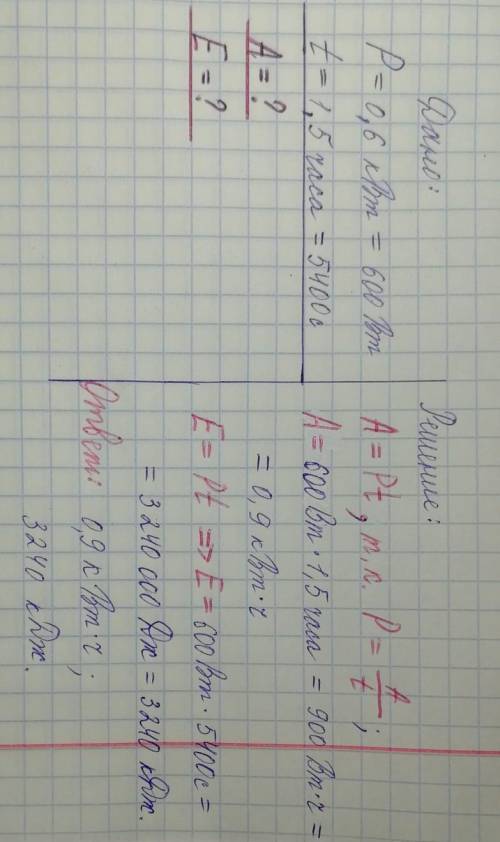 Дано:
P = 0,6 кВт = 600 Вт
t = 1,5 часа = 5400с
A = ?
E = ?
Решение:
A = Pt, т.к. P = A/t;
A = 600 Вт · 1,5 часа = 900 Вт·ч =
= 0,9 кВт·ч
E = Pt => E = 600 Вт · 5400с =
= 3240 000 Дж = 3240 кДж.
Ответ: 0,9 кВт·ч;
3240 кДж.